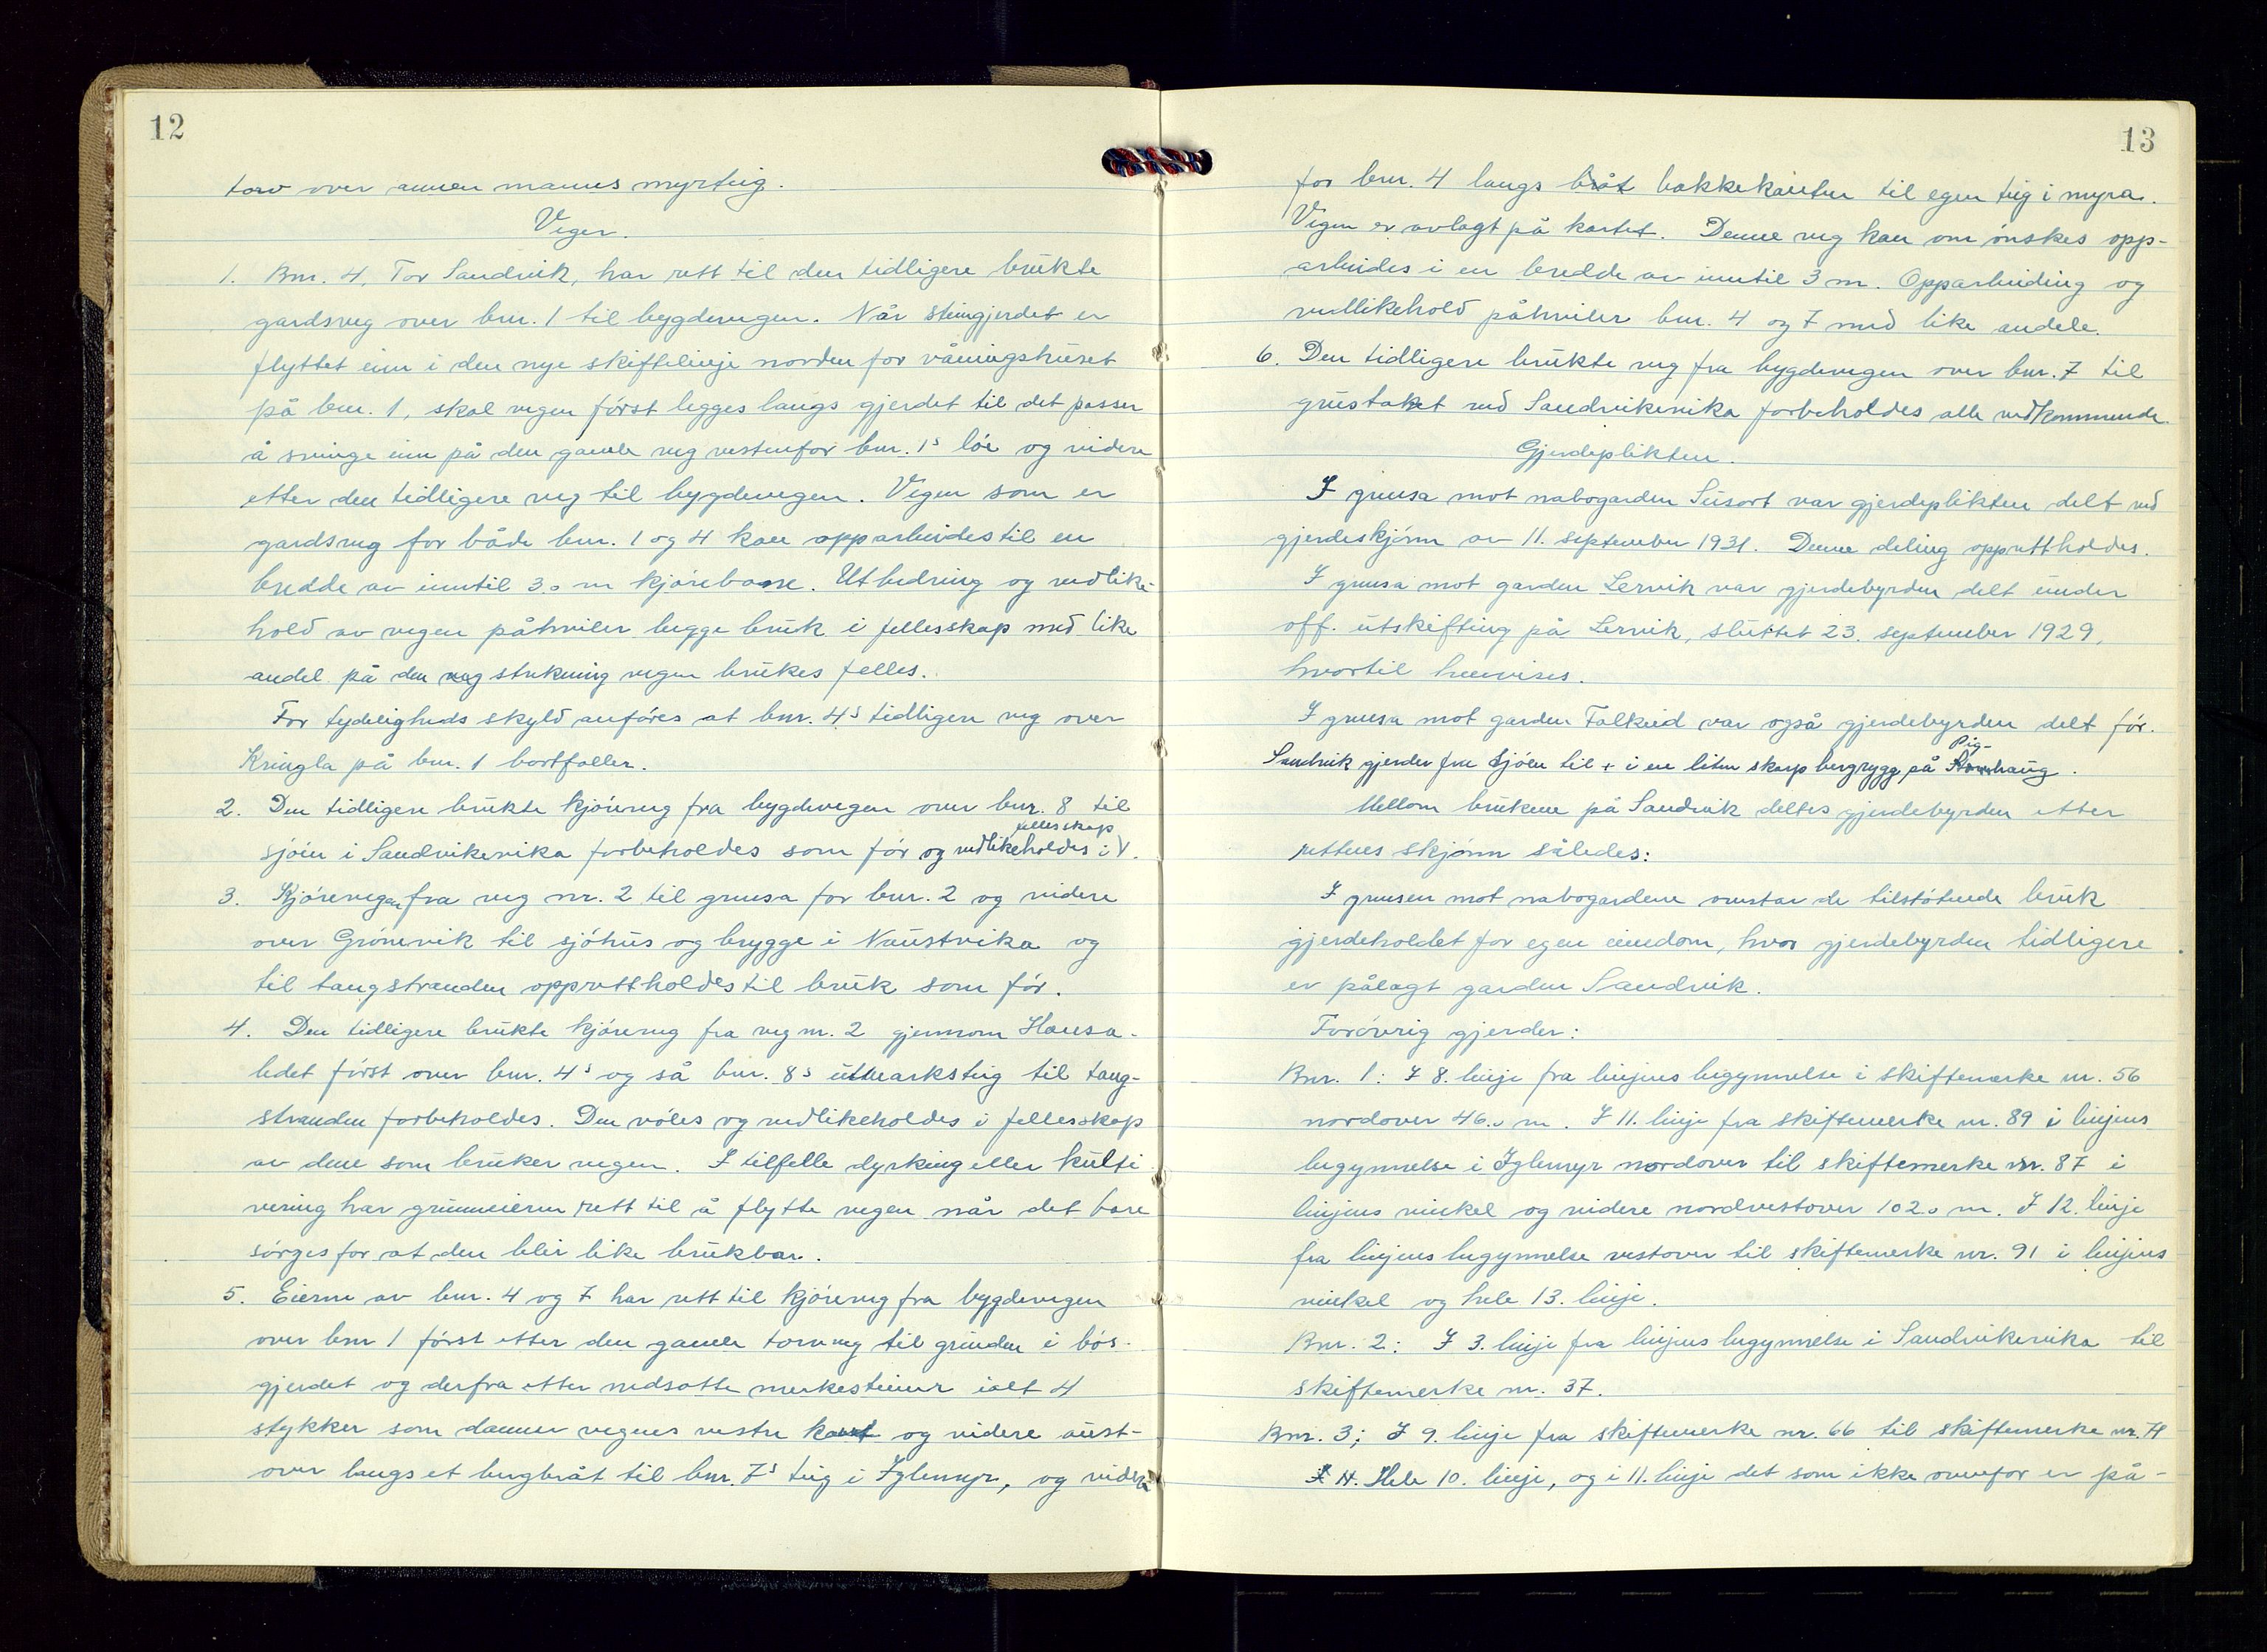 12
torv over annen manns myrteig.
Veger.
1. Bnr. 4, Tor Sandvik, har rett til den tidligere brukte
gardsveg over bnr. 1 til bygdevegen. Når steingjerdet er
flyttet inn i den nye skiftelinje norden for våningshuset
på bnr. 1, skal vegen først legges langs gjerdet til det passer
å svinge inn på den gamle veg vestenfor bnr. 1s løe og videre
etter den tidligere veg til bygdevegen. Vegen som er
gardsveg for både bnr. 1 og 4 kan opparbeides til en
bredde av inntil 3.0 m kjørebane. Utbedring og vedlike-
hold av vegen påhviler begge bruk i fellesskap med like
andel på den veg strekning vegen brukes felles.
For tydelighets skyld anføres at bnr. 4s tidligere veg over
Kringla på bnr. 1 bortfaller.
2. Den tidligere brukte kjøreveg fra bygdevegen over bnr. 8 til
fellesskap
sjøen i Sandvikevika forbeholdes som før og vedlikeholdes i V.
3. Kjørevegen fra veg nr. 2 til grensa for bnr. 2 og videre
over Grønevik til sjøhus og brygge i Naustvika og
til tangstranden opprettholdes til bruk som før.
4. Den tidligere brukte kjøreveg fra veg nr. 2 gjennom Hansa-
ledet først over bnr. 4s og så bnr. 8s utmarksteig til tang-
stranden forbeholdes. Den vøles og vedlikeholdes i fellesskap
av dem som bruker vegen. I tilfelle dyrking eller kulti
vering har grunneieren rett til å flytte vegen når det bare
sørges for at den blir like brukbar.
5. Eierne av bnr. 4 og 7 har rett til kjøreveg fra bygdevegen
over bnr 1 først etter den gamle torvveg til grinden i bøs-
gjerdet og derfra etter nedsatte merkesteiner ialt 4
stykker som danner vegens vestre kant og videre aust-
over langs et bergbråt til bnr. 7s teig i Iglemyr, og videre
13
for bnr. 4 langs bråt bakkekanten til egen teig i myra.
Vegen er avlagt på kartet. Denne veg kan om ønskes opp-
arbeides i en bredde av inntil 3 m. Opparbeiding og
vedlikehold påhviler bnr. 4 og 7 med like andele.
6. Den tidligere brukte veg fra bygdevegen over bnr. 7 til
grustaket ved Sandvikevika forbeholdes alle vedkommende.
Gjerdeplikten.
I grensa mot nabogarden Susort var gjerdeplikten delt ved
gjerdeskjønn av 11. september 1931. Denne deling opprettholdes.
I grensa mot garden Lervik var gjerdebyrden delt under
off. utskifting på Lervik, sluttet 23. september 1929,
hvortil henvises.
I grensa mot garden Falkeid var også gjerdebyrden delt før.
Pig-
Sandvik gjerder fra sjøen til + i en liten skarp bergrygg på haug.
Mellom brukene på Sandvik deltes gjerdebyrden etter
rettens skjønn således:
I grensen mot nabogardene overtar de tilstøtende bruk
gjerdeholdet for egen eiendom, hvor gjerdebyrden tidligere
er pålagt garden Sandvik.
Forøvrig gjerder:
Bnr. 1: I 8. linje fra linjens begynnelse i skiftemerke nr. 56
nordover 46.0 m. I 11. linje fra skiftemerke nr. 89 i linjens
begynnelse i Iglemyr nordover til skiftemerke nr. 87 i
linjens vinkel og videre nordvestover 102.0 m. I 12. linje
fra linjens begynnelse vestover til skiftemerke nr. 91 i linjens
vinkel og hele 13. linje.
Bnr. 2: I 3. linje fra linjens begynnelse i Sandvikevika til
skiftemerke nr. 37.
Bnr. 3; I 9. linje fra skiftemerke nr. 66 til skiftemerke nr. 74
Hele 10. linje, og i 11. linje det som ikke ovenfor er på-